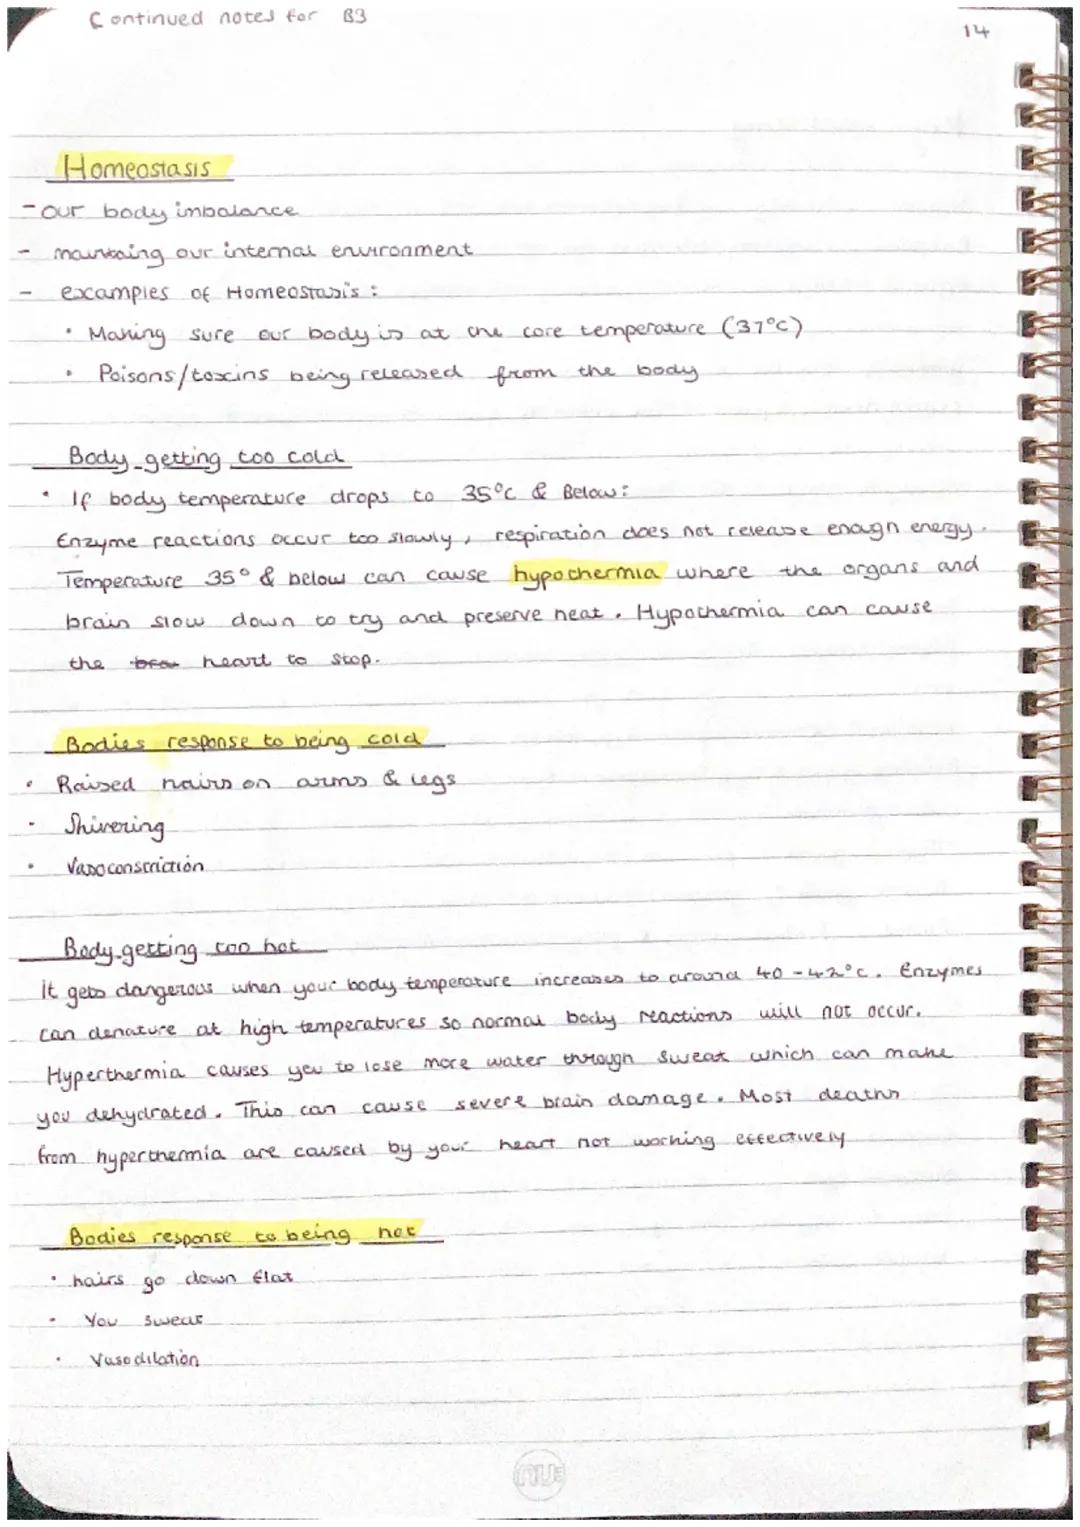 Continued notes for B3
14
Homeostasis
- our body inbalance
- maintaing our internal environment
- examples of Homeostasis :
• Making sure our body is at the core temperature (37°C)
• Poisons/toxins being released from the body
Body getting too cold
• If body temperature drops to 35°C & Below :
Enzyme reactions occur too slowly, respiration does not release enough energy.
Temperature 35° & below can cause hypothermia where the organs and
brain slow down to try and preserve heat. Hypothermia can cause
the heart to stop.
Bodies response to being cold
• Raised hairs on arms & legs
• Shivering
• Vasoconstriction
Body getting too hot
it gets dangerous when your body temperature increases to around 40-42°C. Enzymes
can denature at high temperatures so normal body reactions will not occur.
Hyperthermia causes you to lose more water through sweat which can make
you dehydrated. This can cause severe brain damage. Most deaths
from hyperthermia are caused by your heart not working effectively
Bodies response to being hot
• hairs go down flat
• You sweat
• Vasodilation
nu: